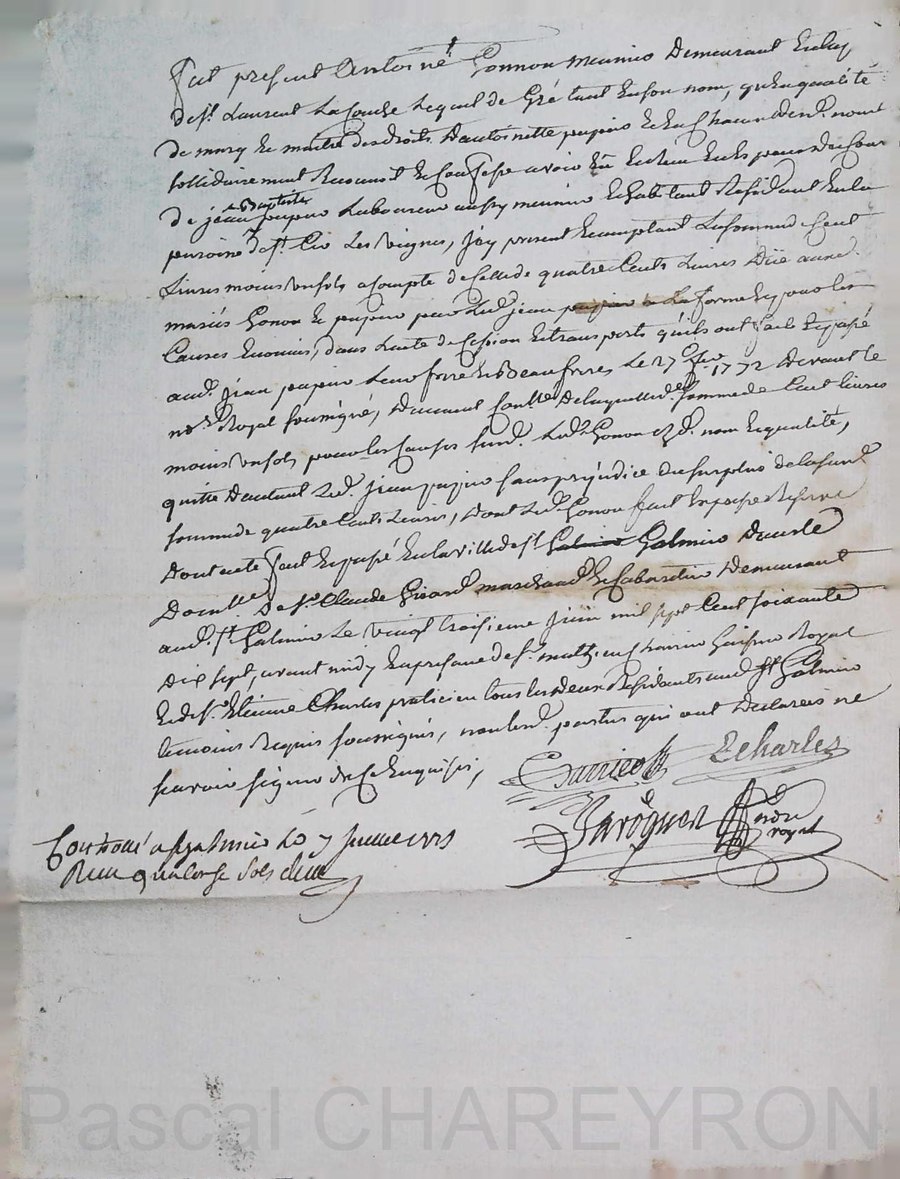 fut present Antoine Gonnon Meunier Demeurant En la
de St. Laurent La Conche Lequel de Gré tant En son nom, qu'En qualité
de mary Et maitre des droits D'antoinette pupier Et En Chacun Des d. noms
sollidairement Reconnoit Et Confesse avoir Eü Et Reçu En Es presentes du Sieur
de jean Baptiste pupier Laboureur aussy meunier Et habitant Residant En la
paroisse de St. Cir Les Vignes, jcy present Et acceptant La somme de Cent
Livres moins un sols a Compte de Celle de quatre Cents Livres Düe aux d.
mariés Gonon Et pupier par Led. jean pupier En La forme Et pour les
Causes Enoncées, dans L'acte de Cession Et transports qu'ils ont faits Et passé
aud. jean pupier Leur frere Et Beaufrere, Le 27 1772 Devant le
no.re Royal soussigné, De laquelle d. somme de Cent livres
moins un sols pour les Causes susd. Led. Gonon Esd. nom Et qualité,
quitte D'autant Led. jean pupier sans prejudice du surplus de la susd.
somme de quatre Cents Livres, Dont Led. Gonon fait Expresse Reserve
Dont acte fait Et passé En la ville de St. Galmier Galmier D'
De Sr. Claude Girard marchand Et Cabaretier Demeurant
aud. St. Galmier Le vingt troisieme juin mil sept Cent soixante
Dix sept, avant midy En presence de Sr. mathieu Royal
Et de Sr. Etienne Charles praticien tous les deux Residants aud. St. Galmier
temoins Requis soussignés, non les d. parties qui ont Declarées ne
savoir signer de Ce Enquises,
Echarles
nore
royal
Controllé a St galmier Le 7 juillet 1777
Recu quatorze sols
Pascal CHAREYRON